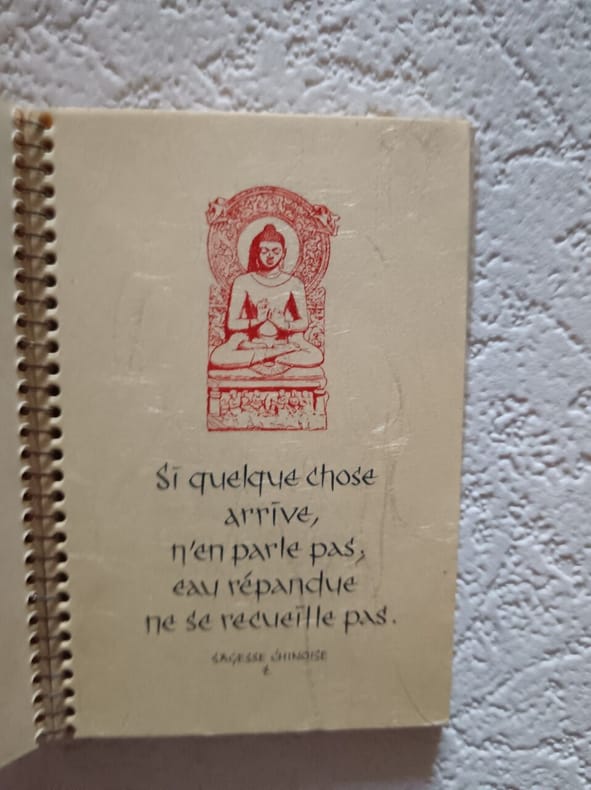 Si quelque chose
arrive,
n'en parle pas,
eau répandue
ne se recueille pas.
SAGESSE CHINOISE